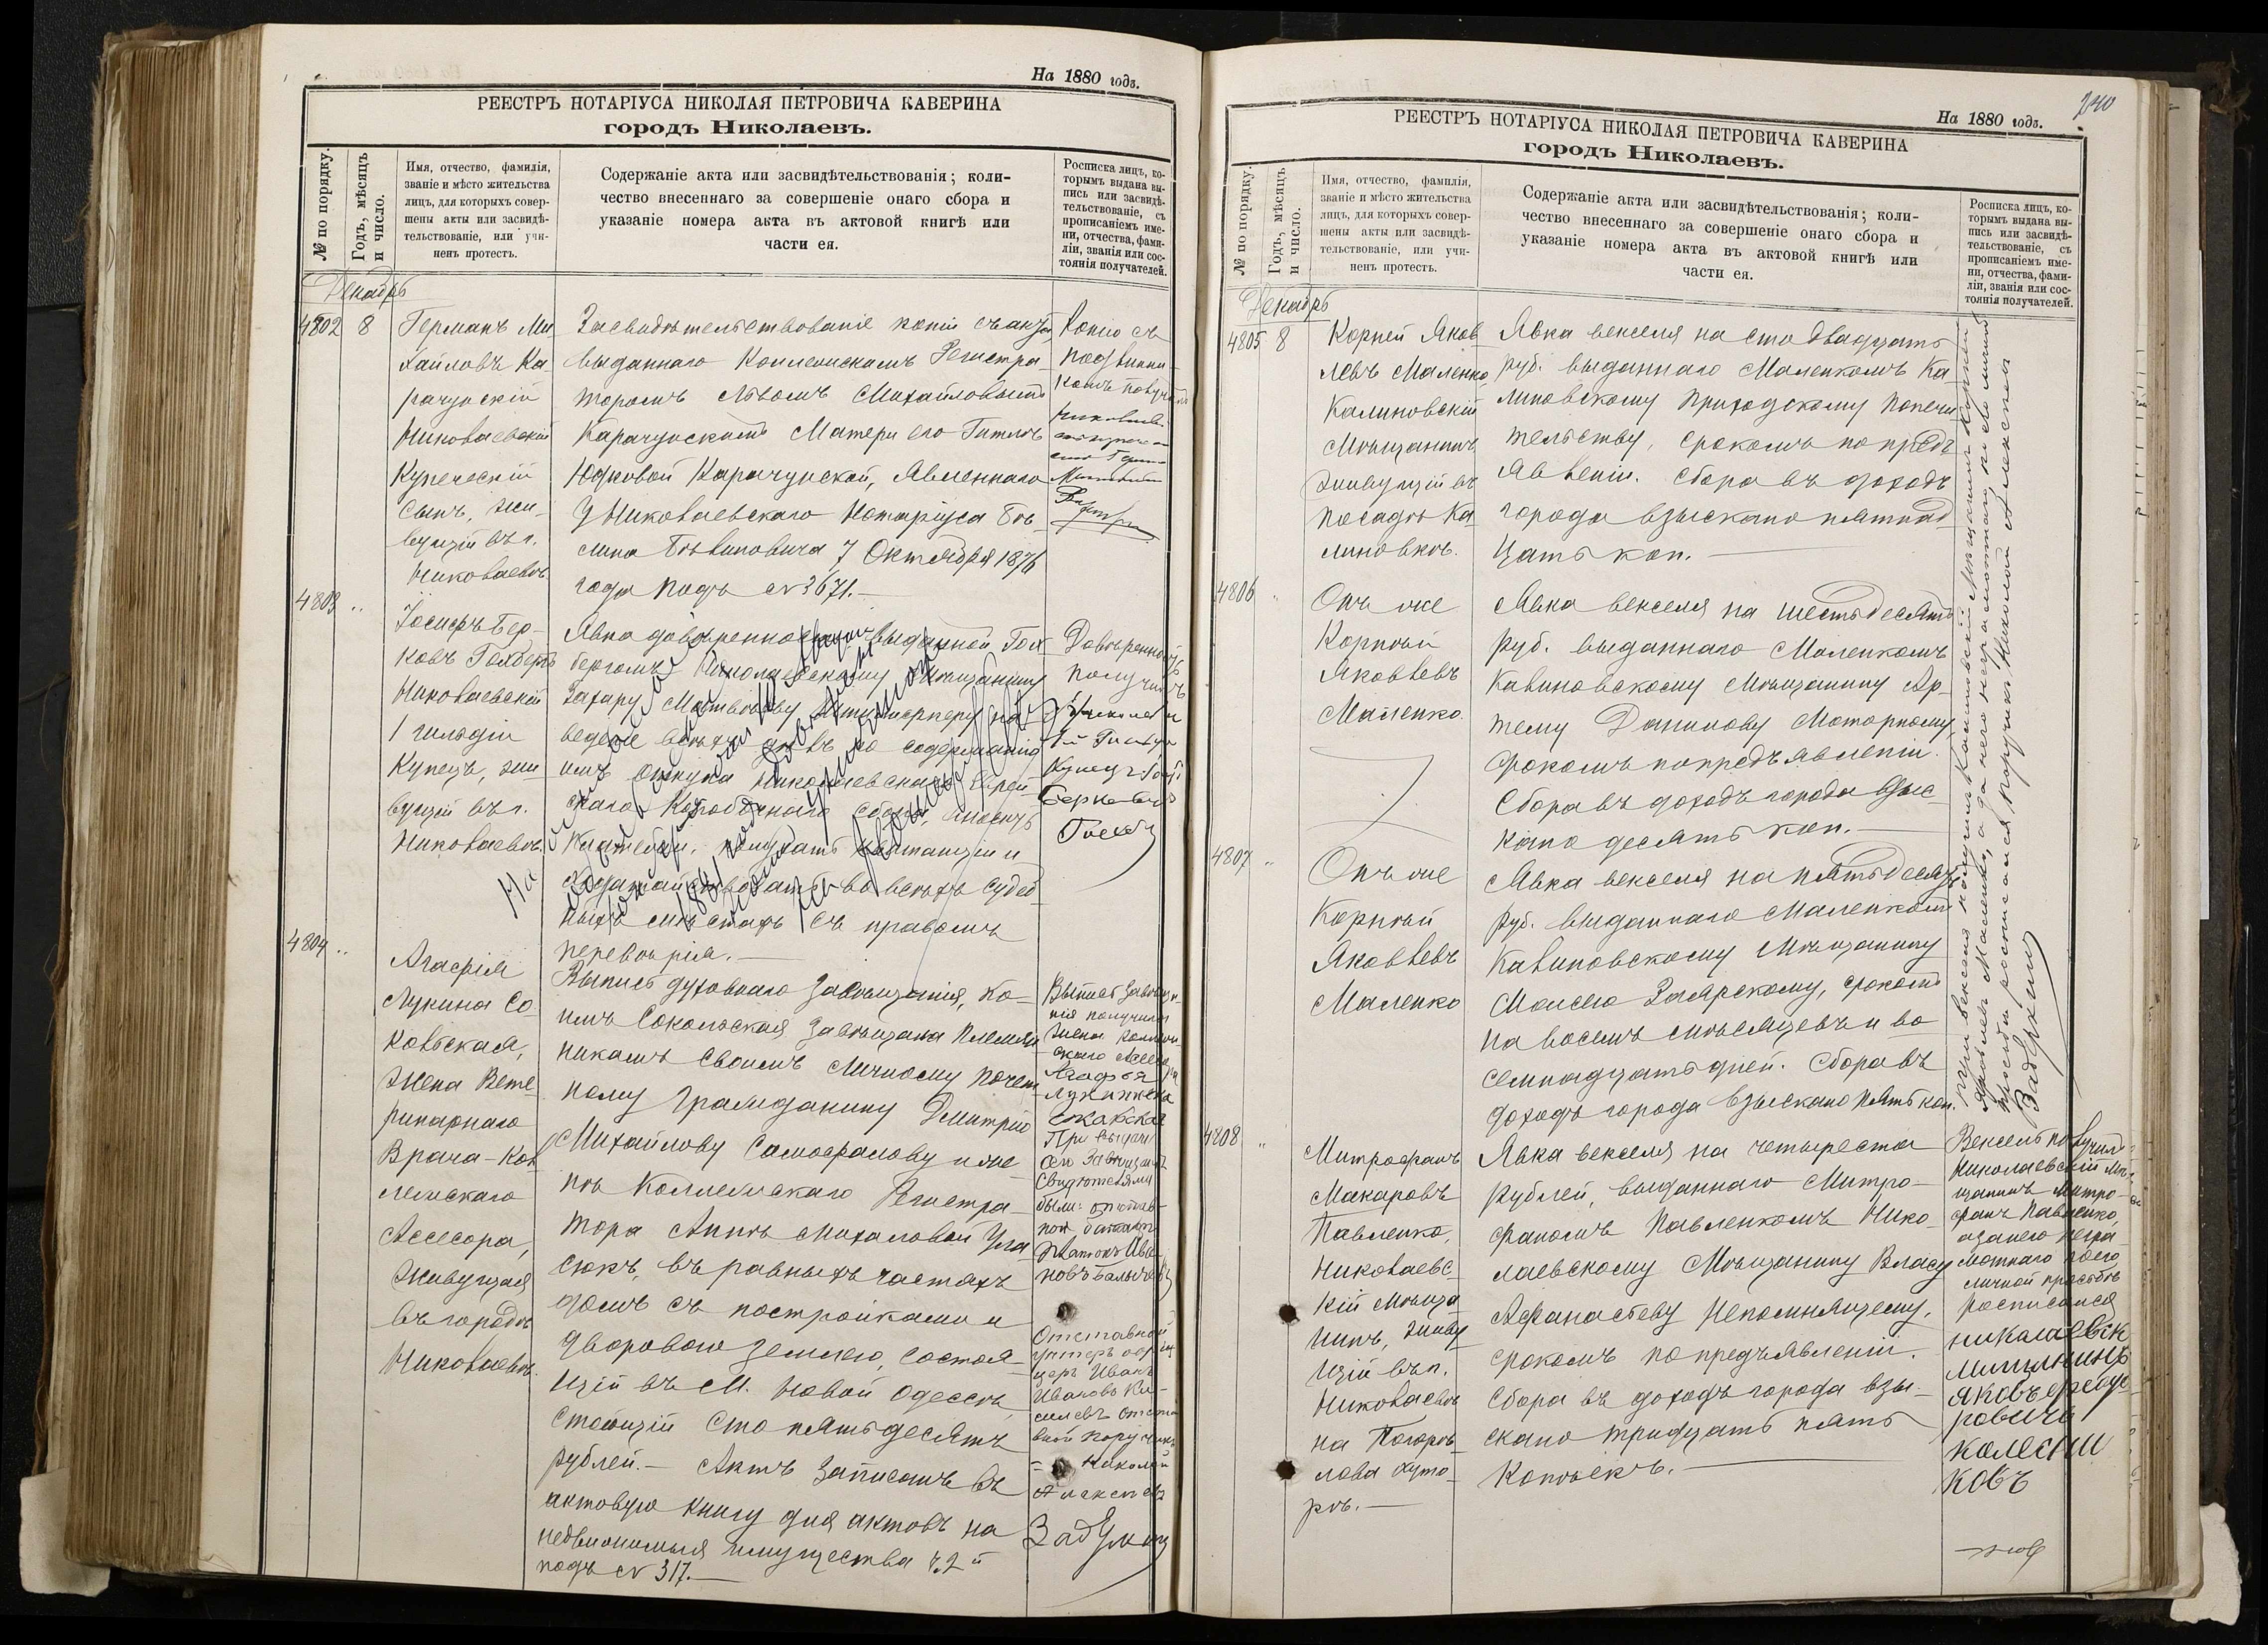 На 1880 годъ.
РЕЕСТРЪ НОТАРІУСА НИКОЛАЯ ПЕТРОВИЧА КАВЕРИНА
городъ Николаевъ.
№ по порядку.
Годъ, мѣсяцъ
и число.
Имя, отчество, фамилія,
званіе и мѣсто жительства
лицъ, для которыхъ совер-
шены акты или засвидѣ-
тельствованіе, или учи-
ненъ протестъ.
Содержаніе акта или засвидѣтельствованія; коли-
чество внесеннаго за совершеніе онаго сбора и
указаніе номера акта въ актовой книгѣ или
части ея.
Росписка лицъ, ко-
торымъ выдана вы-
пись или засвидѣ-
тельствованіе, съ
прописаніемъ име-
ни, отчества, фами-
ліи, званія или сос-
тоянія получателей.
Декабрь
4802 8
Германъ Ми-
хайловъ Ка-
рачунскій
Николаевскій
Купеческій
Сынъ, жи-
вущій въ г.
Николаевѣ.
Засвидѣтельствованіе копіи съ акта,
выданнаго Коллежскимъ Регистра-
торомъ Львомъ Михайловымъ
Карачунскимъ Матери его Гитлѣ
Юдковой Карачунской, явленнаго
У Николаевскаго Нотаріуса Бѣ-
лина Бѣлиновича 7 Октября 1876
года подъ № 3671.
Копію съ
подлинни-
комъ получилъ
4803 "
Іосифъ Бер-
ковъ Голбергъ
Николаевскій
1 гильдіи
Купецъ, жи-
вущій въ г.
Николаевѣ.
Явка довѣренности выданной Гол-
бергомъ Николаевскому Мѣщанину
Захару Матвѣеву на
веденіе всѣхъ дѣлъ по содержанію
имъ откупа Николаевскаго Еврей-
скаго Коробочнаго сбора, вносить
платежи, получать квитанціи и
ходатайствовать во всѣхъ судеб-
ныхъ мѣстахъ съ правомъ
перевѣрія.
Довѣренность
получилъ
Николаевскій
1й Гильдіи
Купецъ
Берковъ
4804 "
Агафія
Лукина Со-
кольская,
Жена Вете-
ринарнаго
Врача-Кол-
лежскаго
Асессора,
Живущая
въ городѣ
Николаевѣ.
Выпись духовнаго завѣщанія, ко-
имъ Сокольская завѣщала племян-
никамъ своимъ Личному Почет-
ному Гражданину Дмитрію
Михайлову Самофалову и же-
нѣ Коллежскаго Регистра-
тора Аннѣ Михаловой
въ равныхъ частяхъ
домъ съ постройками и
дворовою землею, состоя-
щій въ М. Новой Одессѣ,
Стоющій Сто пятьдесятъ
рублей.- Актъ записанъ въ
актовую книгу для актовъ на
недвижимыя имущества ч. 2й
подъ № 317.
Выпись завѣща-
нія получила
Жена Коллеж-
скаго Асессора
Агафья
Лукинична
При выдачѣ
сего завѣщанія
Свидѣтелями
были: отстав-
ной
Отставной
унтеръ офи-
церъ Иванъ
Ивановъ
отста-
вной поручикъ
Николай
Алексѣевъ
240
На 1880 годъ.
РЕЕСТРЪ НОТАРІУСА НИКОЛАЯ ПЕТРОВИЧА КАВЕРИНА
городъ Николаевъ.
№ по порядку.
Годъ, мѣсяцъ
и число.
Имя, отчество, фамилія,
званіе и мѣсто жительства
лицъ, для которыхъ совер-
шены акты или засвидѣ-
тельствованіе, или учи-
ненъ протестъ.
Содержаніе акта или засвидѣтельствованія; коли-
чество внесеннаго за совершеніе онаго сбора и
указаніе номера акта въ актовой книгѣ или
части ея.
Росписка лицъ, ко-
торымъ выдана вы-
пись или засвидѣ-
тельствованіе, съ
прописаніемъ име-
ни, отчества, фами-
ліи, званія или сос-
тоянія получателей.
Декабрь
4805 8
Корней Яков-
левъ Маленко
Калиновскій
Мѣщанинъ
Живущій въ
посадѣ Ка-
линовкѣ.
Явка векселя на сто двадцать
руб. выданнаго Маленкомъ Ка-
линовскому Приходскому попечи-
тельству, срокомъ по предъ-
явленіи. Сбора въ доходъ
города взыскано пятнад-
цать коп.
4806 "
Онъ же
Корнѣй
Яковлевъ
Маленко.
Явка векселя на шестьдесятъ
руб. выданнаго Маленкомъ
Калиновскому Мѣщанину Ар-
тему Данилову Моторному,
срокомъ по предъявленіи.
Сбора въ доходъ города взыс-
кано десять коп.
4807 "
Онъ же
Корнѣй
Яковлевъ
Маленко
Явка векселя на пятьдесятъ
руб. выданнаго Маленкомъ
Калиновскому Мѣщанину
Моисею Заярскому, срокомъ
на восемь мѣсяцевъ и во
семнадцать дней. Сбора въ
доходъ города взыскано пять коп.
три векселя получилъ Калиновскій Мѣщанинъ Корней
Яковлевъ Маленко, а за него неграмотнаго по его личной
просьбѣ росписался поручикъ Николай Алексѣевъ
4808 "
Митрофанъ
Макаровъ
Павленко,
Николаевс-
кій Мѣща-
нинъ, живу-
щій въ г.
Николаевѣ
на Погорѣ-
лова хуто-
рѣ.
Явка векселя на четыреста
рублей, выданнаго Митро-
фаномъ Павленкомъ Нико-
лаевскому Мѣщанину Власу
Афанасьеву Непомнящему,
срокомъ по предъявленіи.
Сбора въ доходъ города взы-
скано тридцать пять
копѣекъ.
Вексель получилъ
Николаевскій Мѣ-
щанинъ Митро-
фанъ Павленко,
а за него негра-
мотнаго по его
личной просьбѣ
росписался
николаевск
мищининъ
яковъ
колесни
ковъ